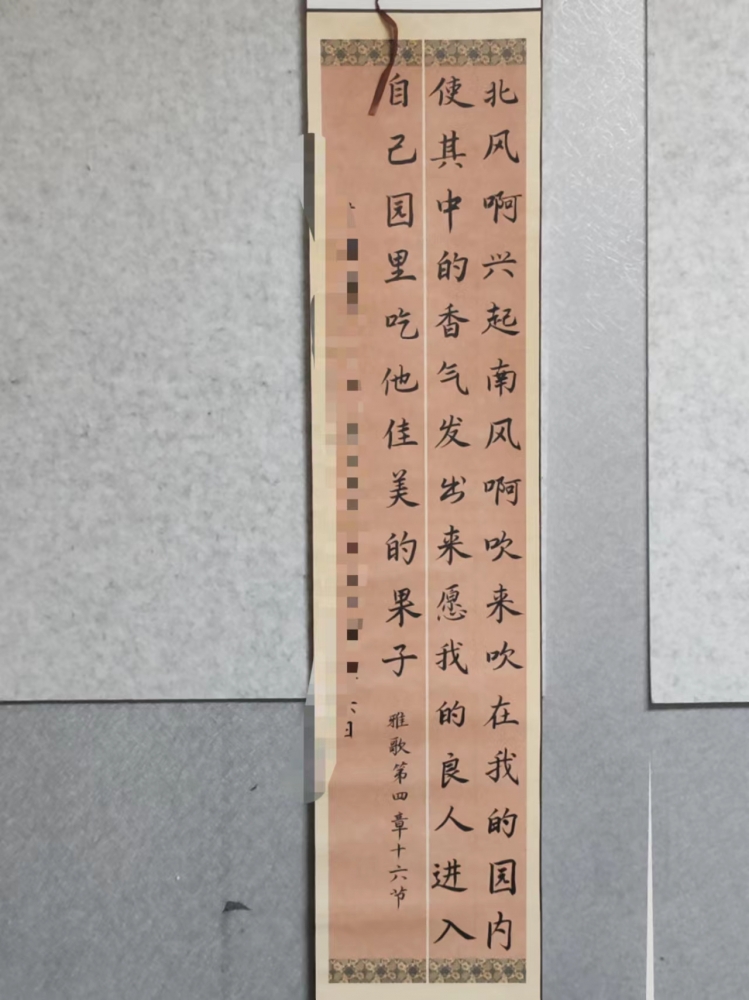 北风啊兴起南风啊吹来吹在我的园内
使其中的香气发出来愿我的良人进入
自己园里吃他佳美的果子
雅歌第四章十六节